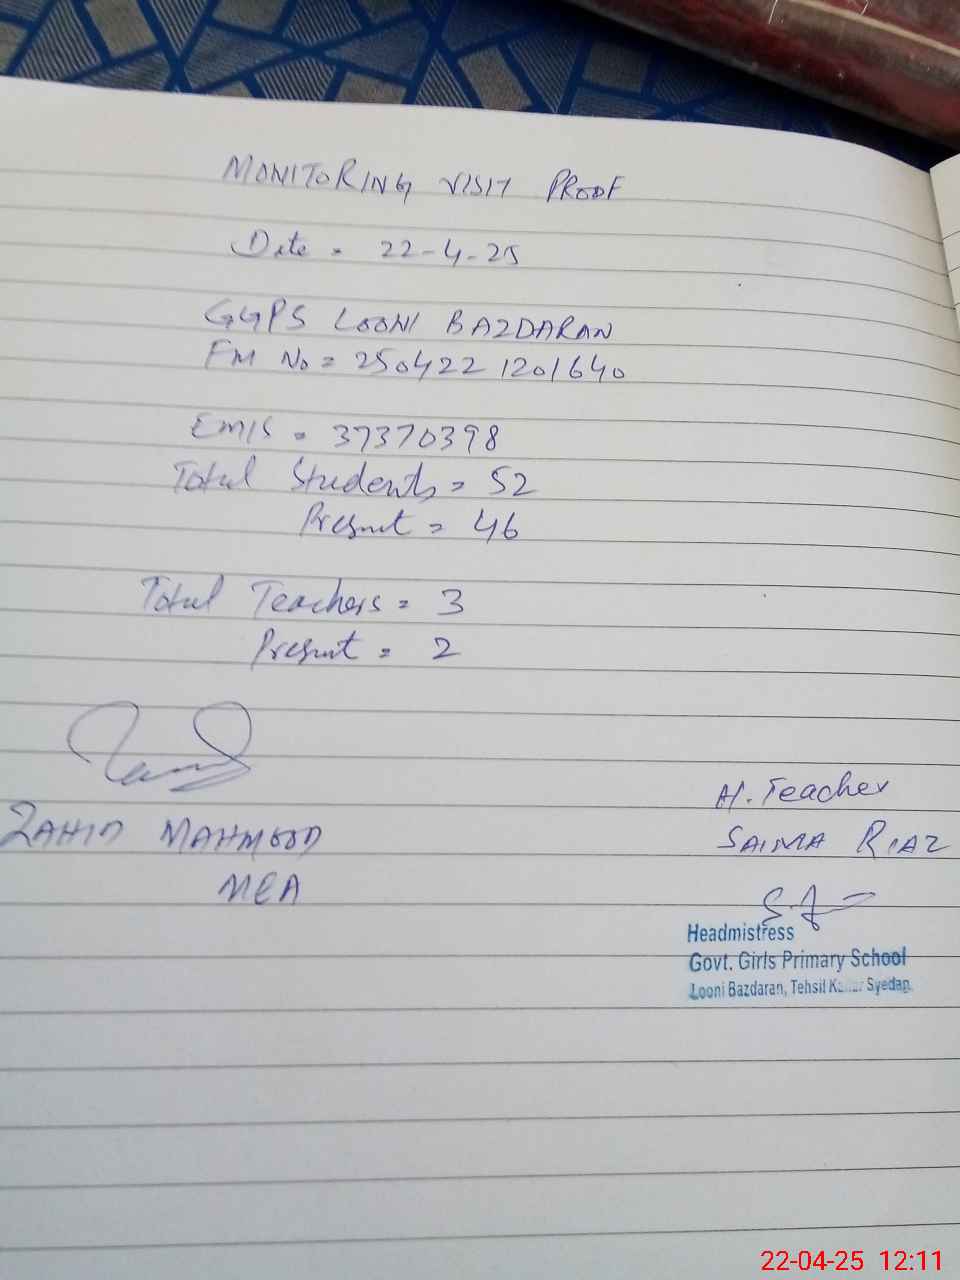 MONITORING VISIT PROOF
Date = 22-4-25
GGPS LOONI BAZDARAN
FM No = 250422 1201640
EMIS = 37370398
Total Students = 52
Present = 46
Total Teachers = 3
Present = 2
ZAHID MAHMOOD
MEA
H. Teacher
SAIMA RIAZ
Headmistress
Govt. Girls Primary School
Looni Bazdaran, Tehsil Syedan
22-04-25 12:11